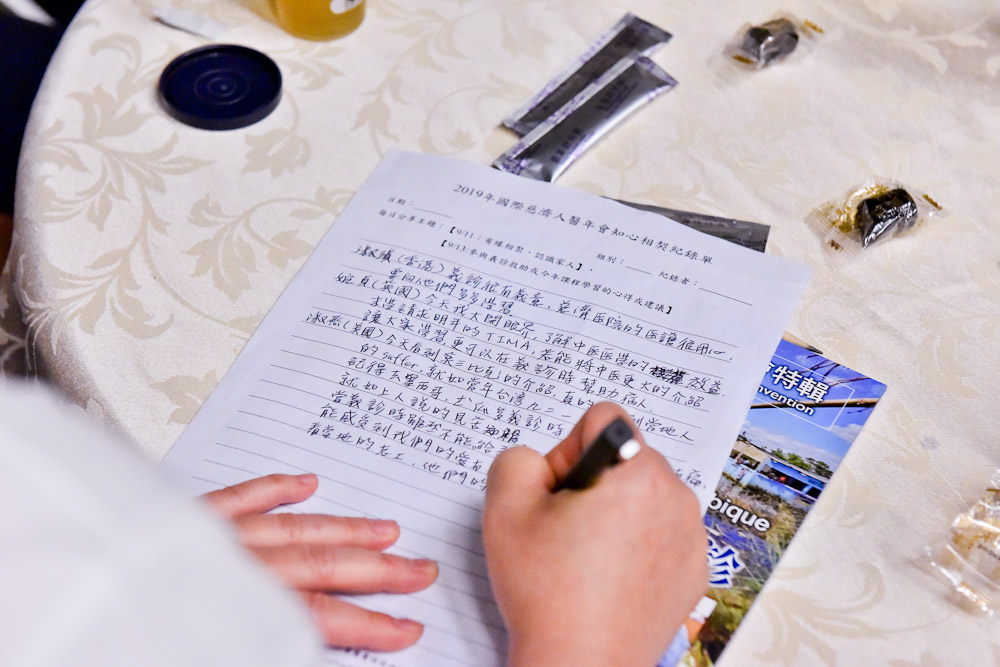 2019年國際慈濟人醫年會知心相契紀錄單
日期：_____ 組別：____ 紀錄者：_______
每日分享主題：【9/11：有緣相聚、認識家人】、
【9/13：參與義診救助或今年課程學習的心得或建議】
(香港) 義診很有義意, 慈濟医院的医護很用心,
要向他們多多學習
(英國) 今天我大開眼界, 了解中医医学的效益
求学請求明年的TIMA, 若能將中医更大的介紹
讓大家學習更可以在義診時幫助病人.
(美國) 今天看到莫三比克的介紹, 真的到當地人
的suffer, 就如當年台湾九二一
記得去墨西哥, 義診時
就如上人說的見苦知福
當義診時雖我不能給
能感受到我們的愛
看當地的志工, 他們的
特輯
nvention
bique